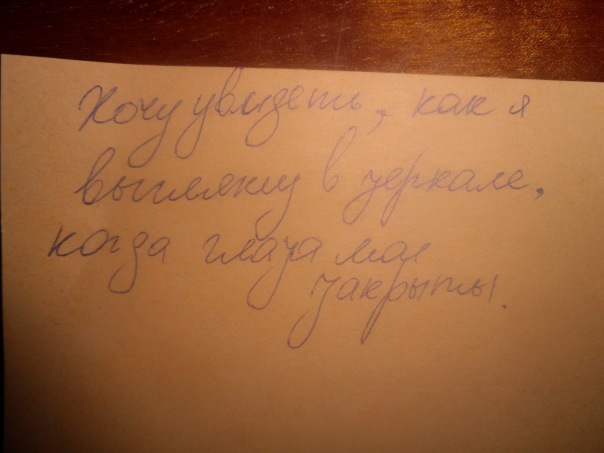 Хочу увидеть, как я
выгляжу в зеркале,
когда глаза мои
закрыты.